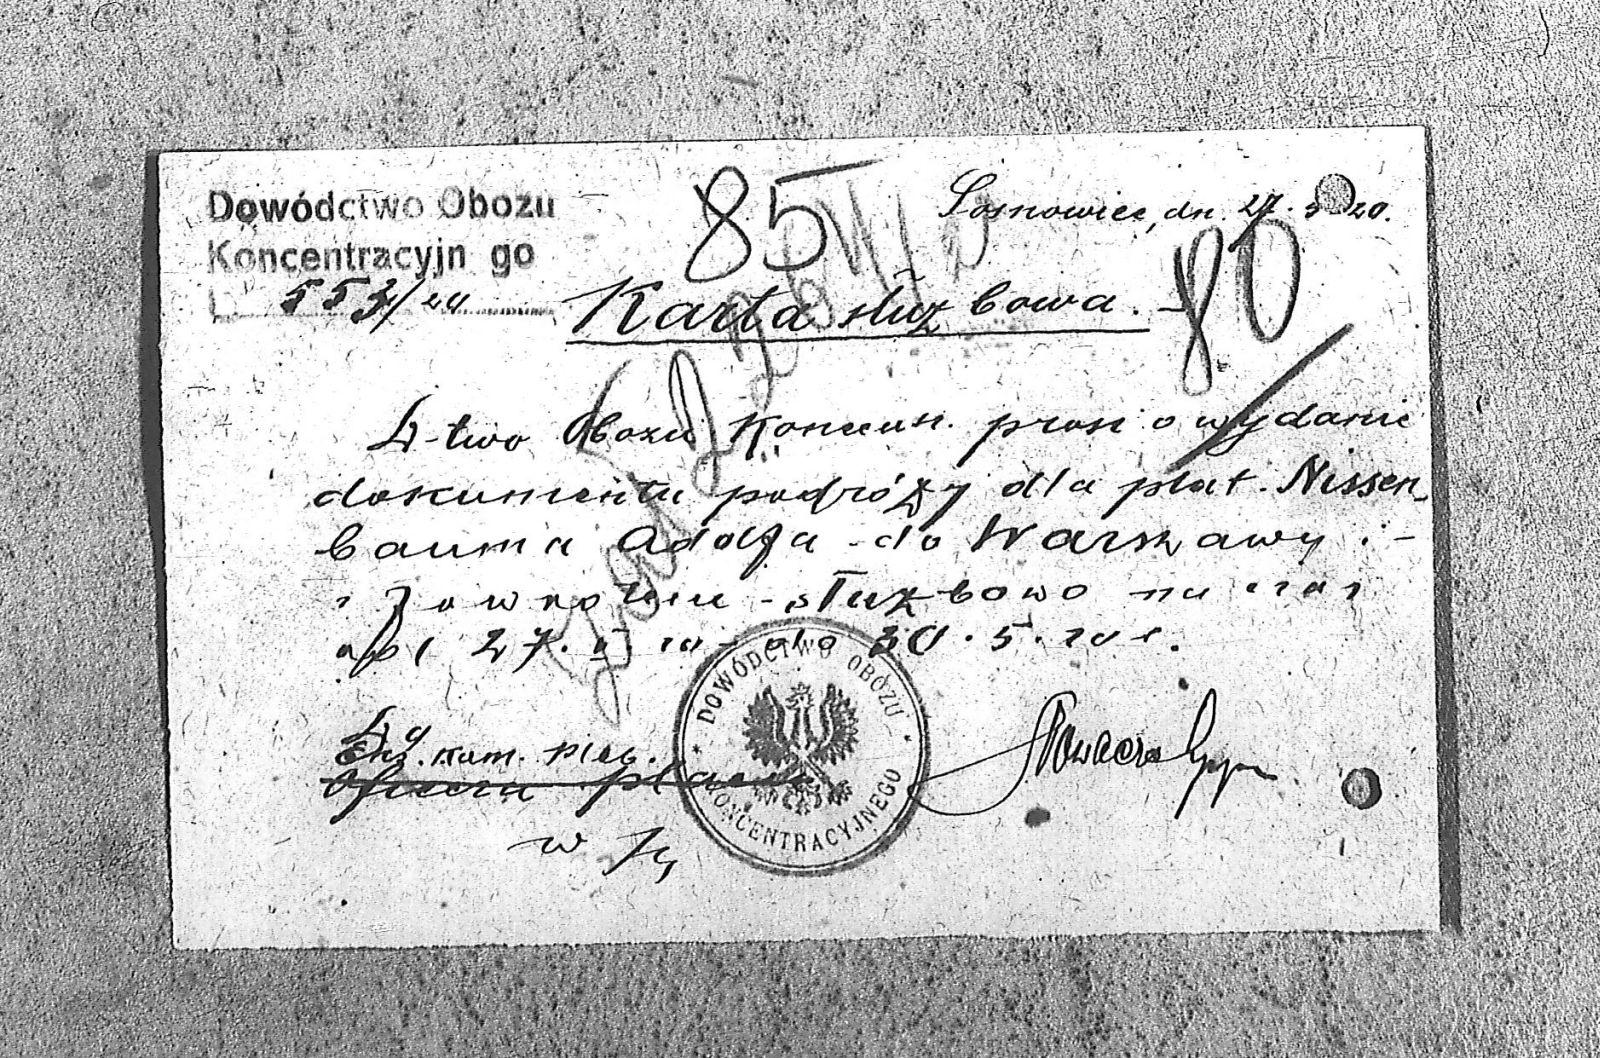 Dowództwo Obozu
Koncentracyjn go
553/20
85
Sosnowiec, dn. 27. 5 20.
80
Karta służbowa. -
D-two Obozu Koncen. prosi o wydanie
dokumentu podróży dla plut. Nissen-
bauma Adolfa do Warszawy i -
z powrotem - służbowo na czas
od 27. 5 20 - do 30. 5. 20 r.
DOWÓDZTWO OBOZU
KONCENTRACYJNEGO
kom.
Oficera
w